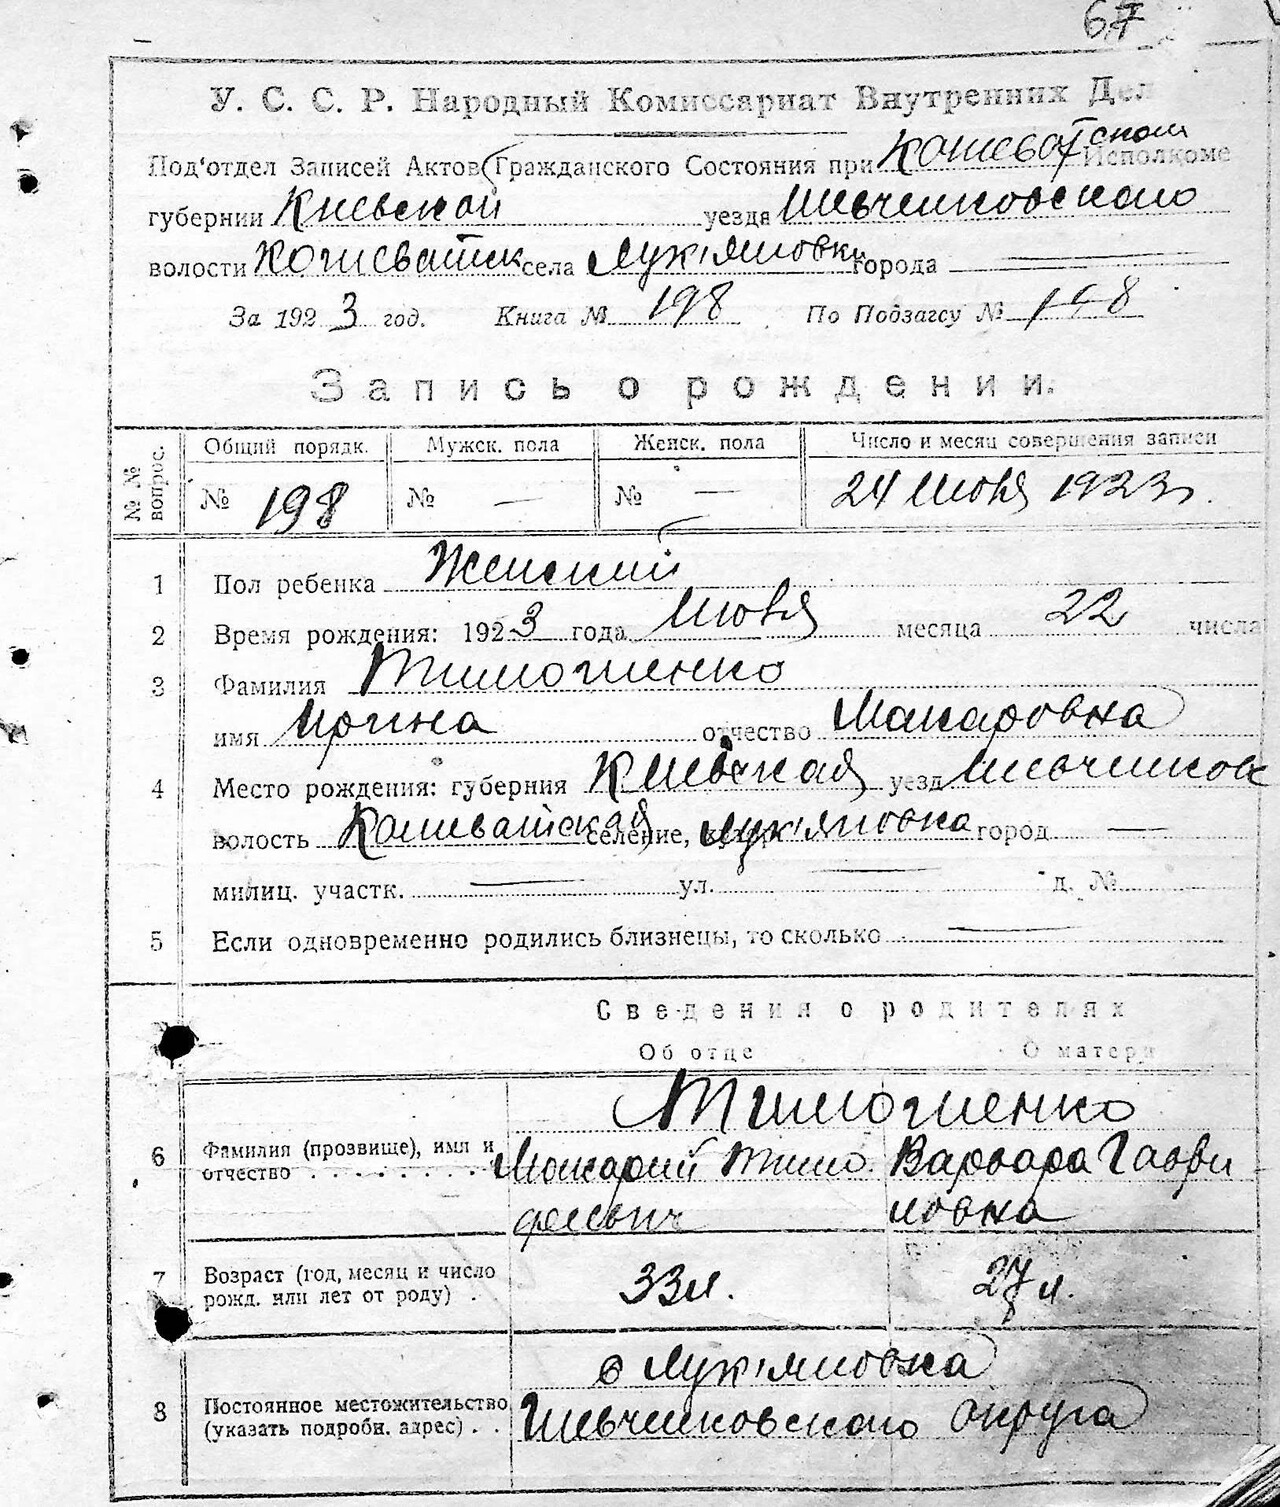 67
У. С. С. Р. Народный Комиссариат Внутренних Дел
Под'отдел Записей Актов Гражданского Состояния при Кошеватском Исполкоме
губернии Киевской уезда Шевченковского
волости Кошеватск села Лук'яновки города —
За 1923 год. Книга № 198 По Подзагсу № 198
Запись о рождении.
№№ вопрос. Общий порядк. Мужск. пола Женск. пола Число и месяц совершения записи
№ 198 № — № — 24 Июня 1923 г.
1 Пол ребенка Женский
2 Время рождения: 1923 года Июня месяца 22 числа
3 Фамилия Тимошенко
имя Ирина отчество Макаровна
4 Место рождения: губерния Киевская уезд Шевченковск
волость Кошеватская селение, Лук'яновка город —
милиц. участк. — ул. — д. №
5 Если одновременно родились близнецы, то сколько —
Сведения о родителях
Об отце О матери
Тимошенко
6 Фамилия (прозвище), имя и Макарий Тимо Варвара Гаври
отчество феевич ловна
7 Возраст (год, месяц и число 33 л. 27 л.
рожд. или лет от роду) .
в Лук'яновка
8 Постоянное местожительство Шевченковского округа
(указать подробн. адрес) . .